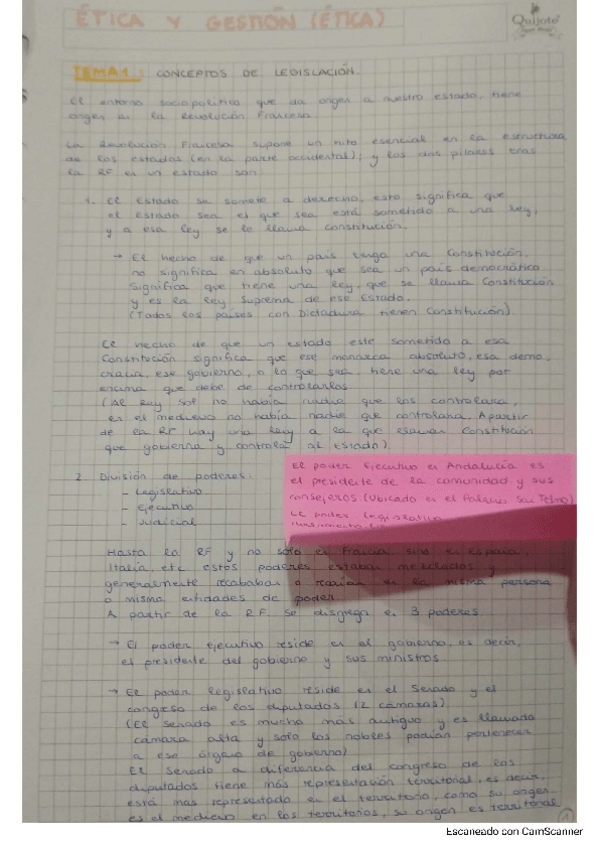 ÉTICA Y GESTIÓN (ÉTICA)
Quijote
TEMA 1: CONCEPTOS DE LEGISLACIÓN.
El entorno sociopolítico que da origen a nuestro estado, tiene
origen en la Revolución Francesa.
La Revolución Francesa supone un hito esencial en la estructura
de los estados (en la parte occidental); y los dos pilares tras
la RF en un estado son:
1. El Estado se somete a derecho, esto significa que
el Estado sea el que sea está sometido a una ley,
y a esa ley se le llama Constitución.
→ El hecho de que un país tenga una Constitución,
no significa en absoluto que sea un país democrático
Significa que tiene una ley, que se llama Constitución
y es la Ley Suprema de ese Estado.
(Todos los países con Dictadura tienen Constitución).
El hecho de que un estado este sometido a esa
Constitución significa que ese monarca absoluto, esa demo-
cracia, ese gobierno, o lo que sea, tiene una ley por
encima que debe de controlarlas
(Al Rey Sol no había nadie que los controlara,
en el medievo no había nadie que controlara. A partir
de la RF hay una ley a la que llaman Constitución
que gobierna y controla al estado).
2. División de poderes:
- Legislativo
- Ejecutivo
- Judicial
El poder Ejecutivo en Andalucía es
el presidente de la comunidad y sus
consejeros (Ubicado en el Palacio San Telmo)
El poder Legislativo
Hasta la RF y no solo en Francia, sino en España,
Italia, etc estos poderes estaban mezclados y
generalmente recababan o recaían en la misma persona
o misma entidades de poder.
A partir de la RF. se disgrega en 3 poderes
→ El poder ejecutivo reside en el gobierno, es decir,
el presidente del gobierno y sus ministros.
→ El poder legislativo reside en el Senado y el
congreso de los diputados (2 cámaras)
(El senado es mucho más antiguo y es llamada
cámara alta y solo los nobles podían pertenecer
a ese órgano de gobierno)
El senado a diferencia del congreso de los
diputados tiene más representación territorial, es decir,
está mas representado en el territorio, como su origen
es el medievo en los territorios, su origen es territorial
Escaneado con CamScanner